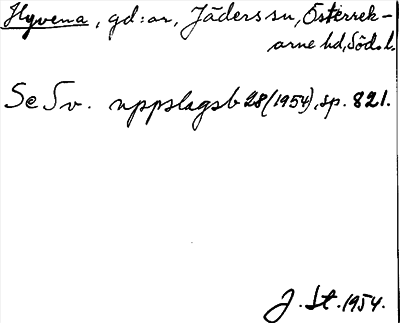 Hyvena, gd:ar, Jäders sn, Österrek-
arne hd, Söd. l.
Se Sv. uppslagsb 28 (1954), sp. 821.
J. St. 1954.